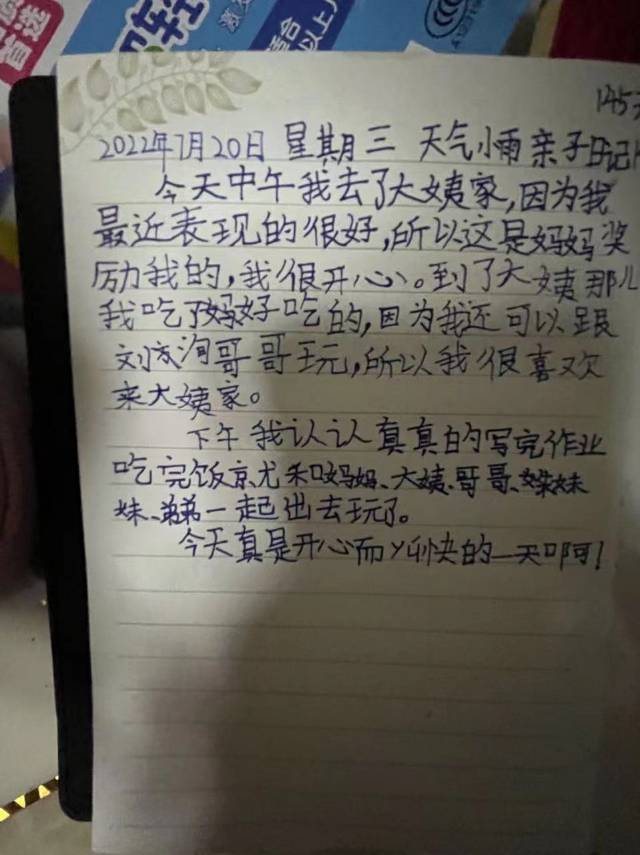 首选
轻
激
适合
以上人
CCC
145天
2022年7月20日 星期三 天气小雨 亲子日记
今天中午我去了大姨家,因为我
最近表现的很好,所以这是妈妈奖
励我的,我很开心。到了大姨那儿
我吃了妈好吃的,因为我还可以跟
刘 洵哥哥玩,所以我很喜欢
来大姨家。
下午我认认真真的写完作业
吃完饭京尤和妈妈、大姨、哥哥、妹
妹、弟弟一起出去玩了。
今天真是开心而愉快的一天啊!